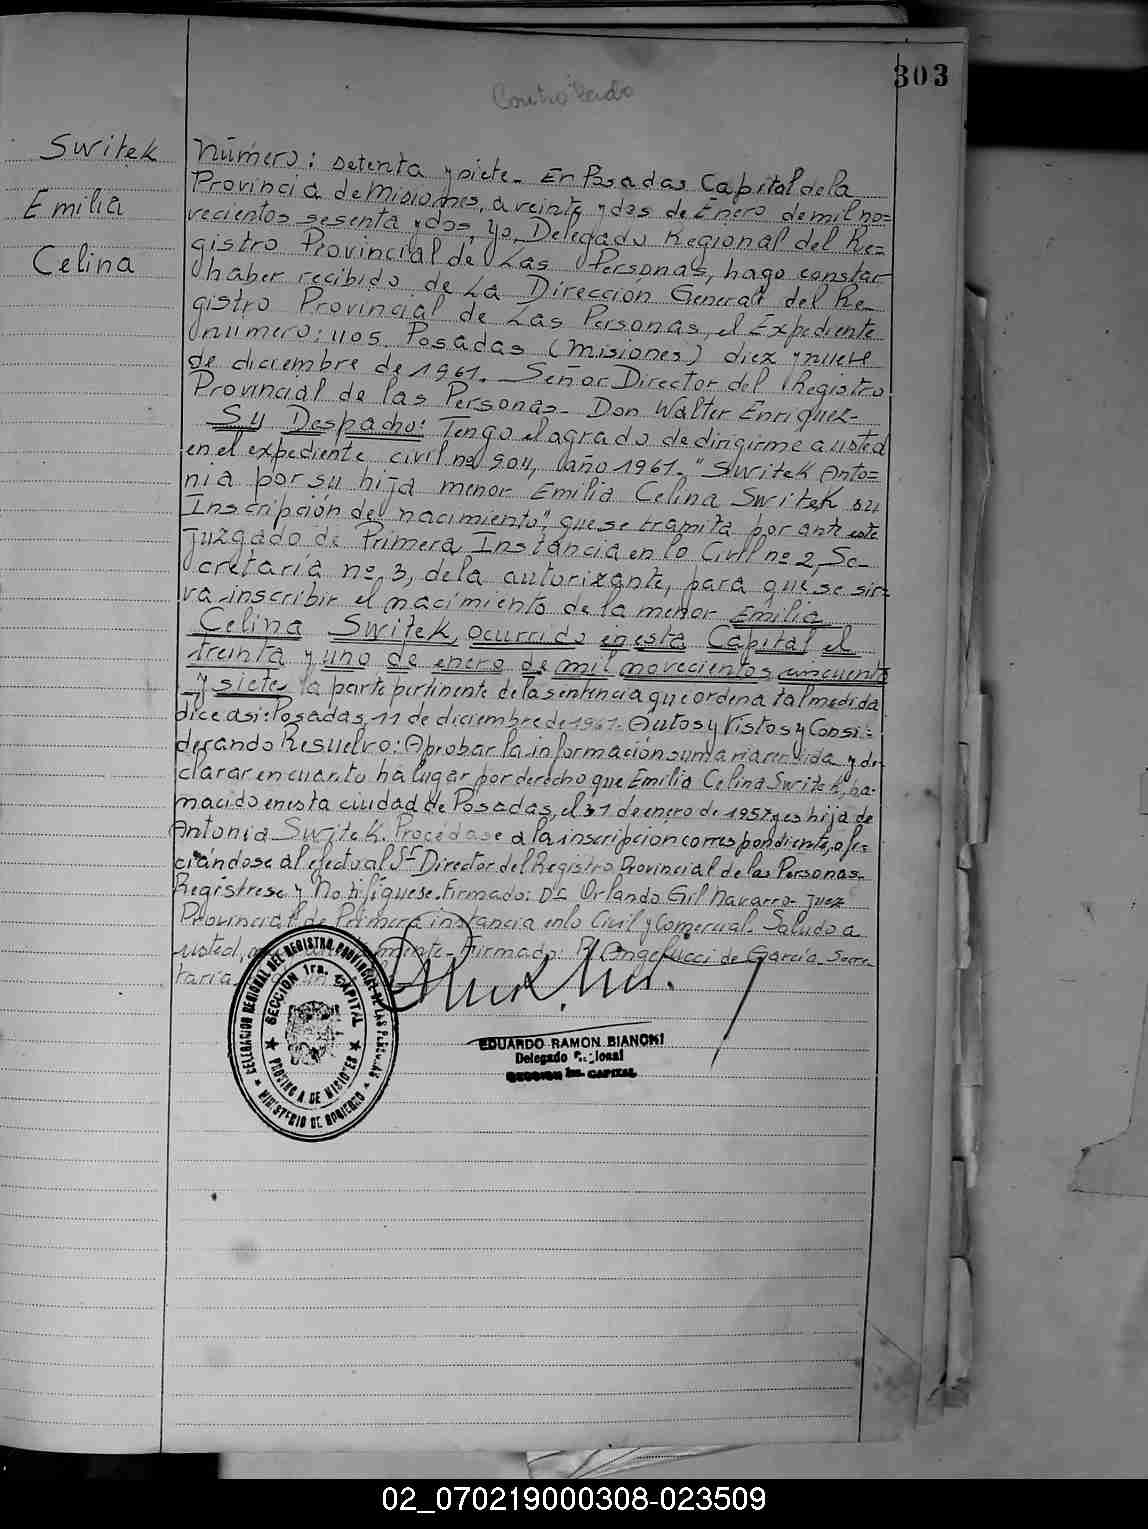 303
Controlado
Switek
Emilia
Celina
Número: setenta y siete. En Posadas Capital de la
Provincia de Misiones, a veinte y dos de Enero de mil no=
vecientos sesenta y dos, yo, Delegado Regional del Re=
gistro Provincial de Las Personas, hago constar
haber recibido de La Dirección General del Re_
gistro Provincial de Las Personas, el Expediente
número: 1105. Posadas (Misiones) diez y nueve
de diciembre de 1961. Señor Director del Registro
Provincial de las Personas- Don Walter Enriquez-
Su Despacho: Tengo el agrado de dirigirme a usted
en el expediente civil nº 904, año 1961. "Switek Anto=
nia por su hija menor Emilia Celina Switek su
Inscripción de nacimiento", que se tramita por ante este
juzgado de Primera Instancia en lo Civil nº 2, Se-
cretaría nº 3, de la autorizante, para que se sir=
va inscribir el nacimiento de la menor Emilia
Celina Switek, ocurrido en esta Capital el
treinta y uno de enero de mil novecientos cincuenta
y siete, la parte pertinente de la sentencia que ordena tal medida
dice asi: Posadas, 11 de diciembre de 1961- Autos y Vistos y Consi=
derando Resuelvo: Aprobar la información sumaria rendida y de-
clarar en cuanto ha lugar por derecho que Emilia Celina Switek, ha-
nacido en esta ciudad de Posadas, el 31 de enero de 1957 y es hija de
Antonia Switek. Procédase a la inscripcion correspondiente, ofi-
ciándose al efecto al Sr Director del Registro Provincial de las Personas-
Registrese y Notifíquese. Firmado: Dr Orlando Gil Navarro- Juez
Provincial de Primera instancia en lo Civil y Comercial. Saludo a
usted, mente. Firmado: R Angelucci de Garcia. Secre-
taria
DELEGACION REGIONAL DEL REGISTRO PROVINCIAL DE LAS PERSONAS
SECCION 1ra. CAPITAL
PROVINCIA DE MISIONES
MINISTERIO DE GOBIERNO
EDUARDO RAMON BIANCHI
Delegado Regional
SECCION 1ra. CAPITAL
02_070219000308-023509